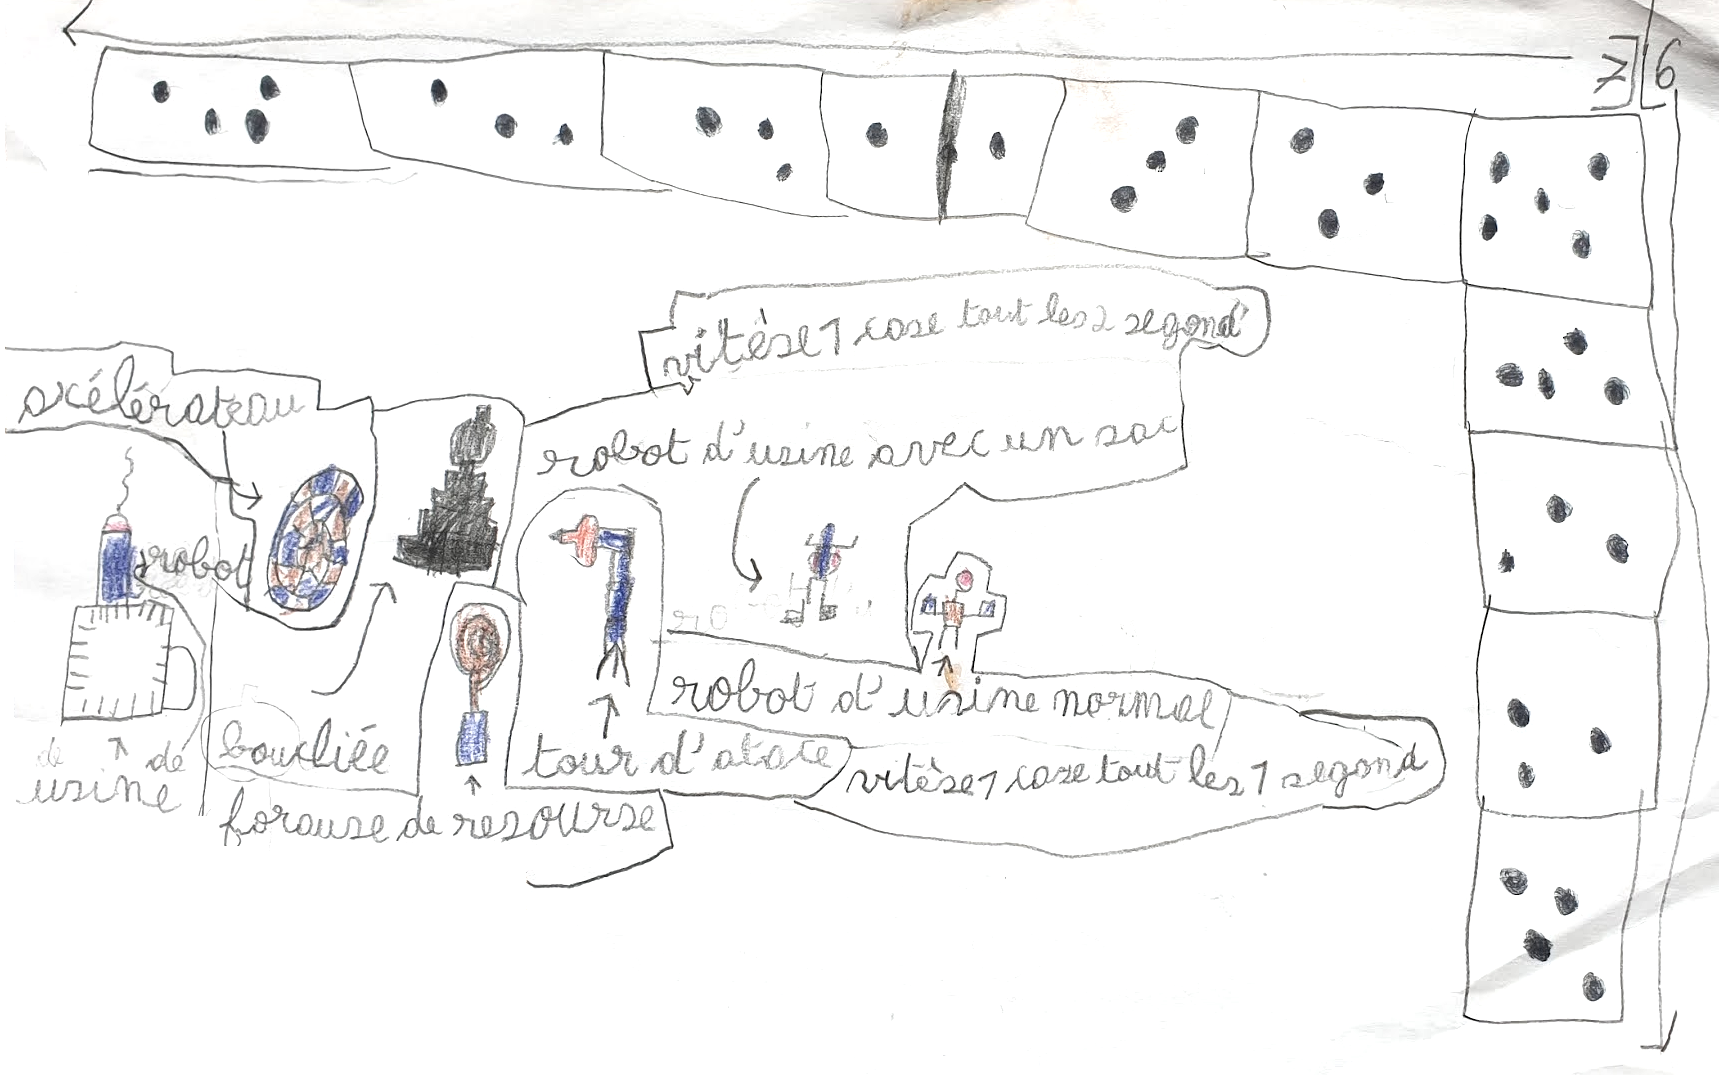 7
6
vitèse 1 case tout les 2 segond
axélérateau
robot d'usine avec un sac
robot
robot d'usine normal
boucliée
tour d'atace
vitèse 1 case tout les 1 segond
de dé
usine
forause de resourse